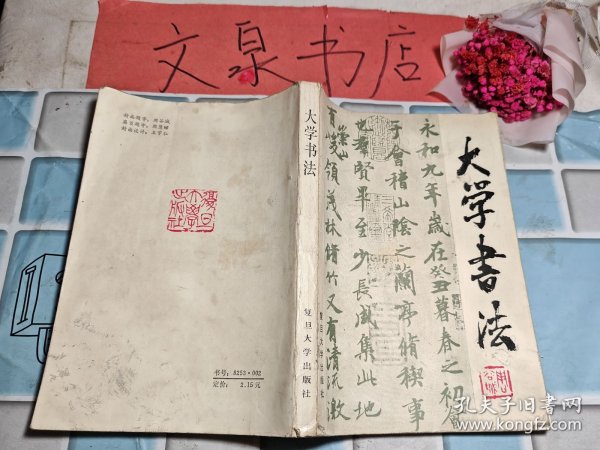 文泉书店
大学书法
永和九年歲在癸丑暮春之初
于會稽山陰之蘭亭脩稧事
也羣賢畢至少長咸集此地
有崇山
峻領茂林脩竹又有清流激
复旦大学出版社
大学书法
复旦大学出版社
复旦
大学
出版社
书号：8253·002
定价： 2.15元
孔夫子旧书网
www.kongfz.com